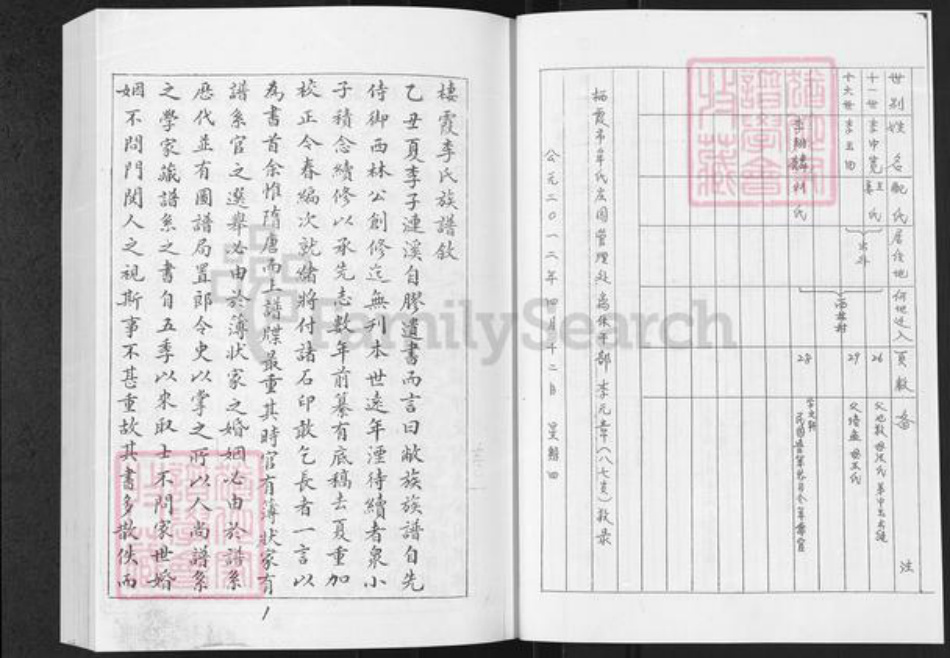 世別
姓名
配氏
居住地
何地迁入
頁数
备注
十一世
李中寬
王
氏
出外
26
十六世
李玉田
西林村
29
父培孟 母王氏
刘氏
28
栖霞市牟氏庄园管理处 离休干部 李元章(八七岁)敬录
公元二〇一二年四月十二日 星期四
棲霞李氏族譜敘
乙丑夏李子漣溪自膠遺書而言曰敝族族譜自先
侍御西林公創修迄無刊本世遠年湮待續者泉小
子積念續修以承先志數年前纂有底稿去夏重加
校正今春編次就緒將付諸石印敢乞長者一言以
為書首余惟隋唐而上譜牒最重其時官有簿狀家有
譜系官之選舉必由於簿狀家之婚姻必由於譜系
歷代並有圖譜局置郎令史以掌之所以人尚譜系
之學家藏譜系之書自五季以來取士不問家世婚
姻不問門閥人之視斯事不甚重故其書多散佚而
1
FamilySearch